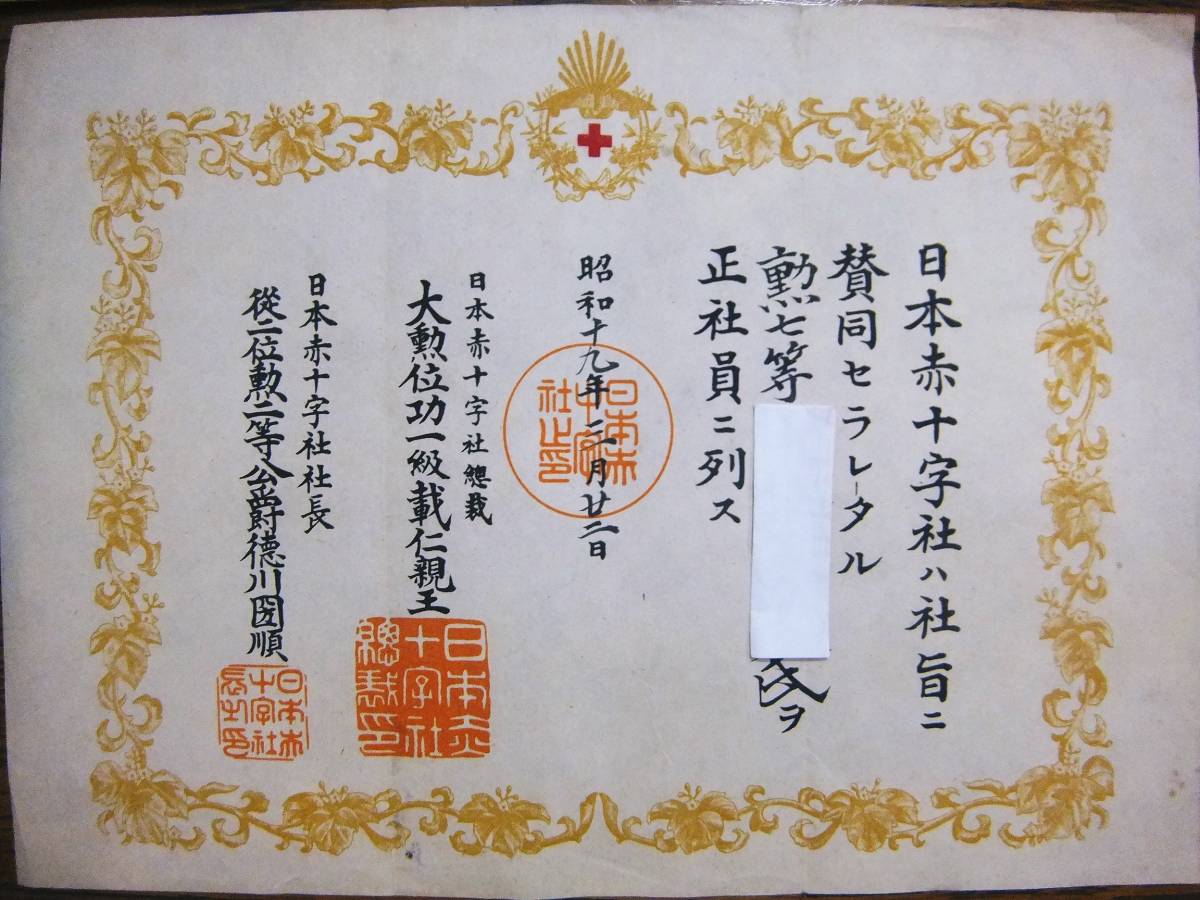 日本赤十字社ハ社旨ニ
賛同セラレタル
勲七等
氏ヲ
正社員ニ列ス
昭和十九年三月廿二日
日本赤十字社總裁
大勲位功一級載仁親王
日本赤十字社社長
從二位勲二等公爵德川圀順
日本赤
十字社
總裁印
日本赤
十字社
長之印
日本赤
十字
社之印